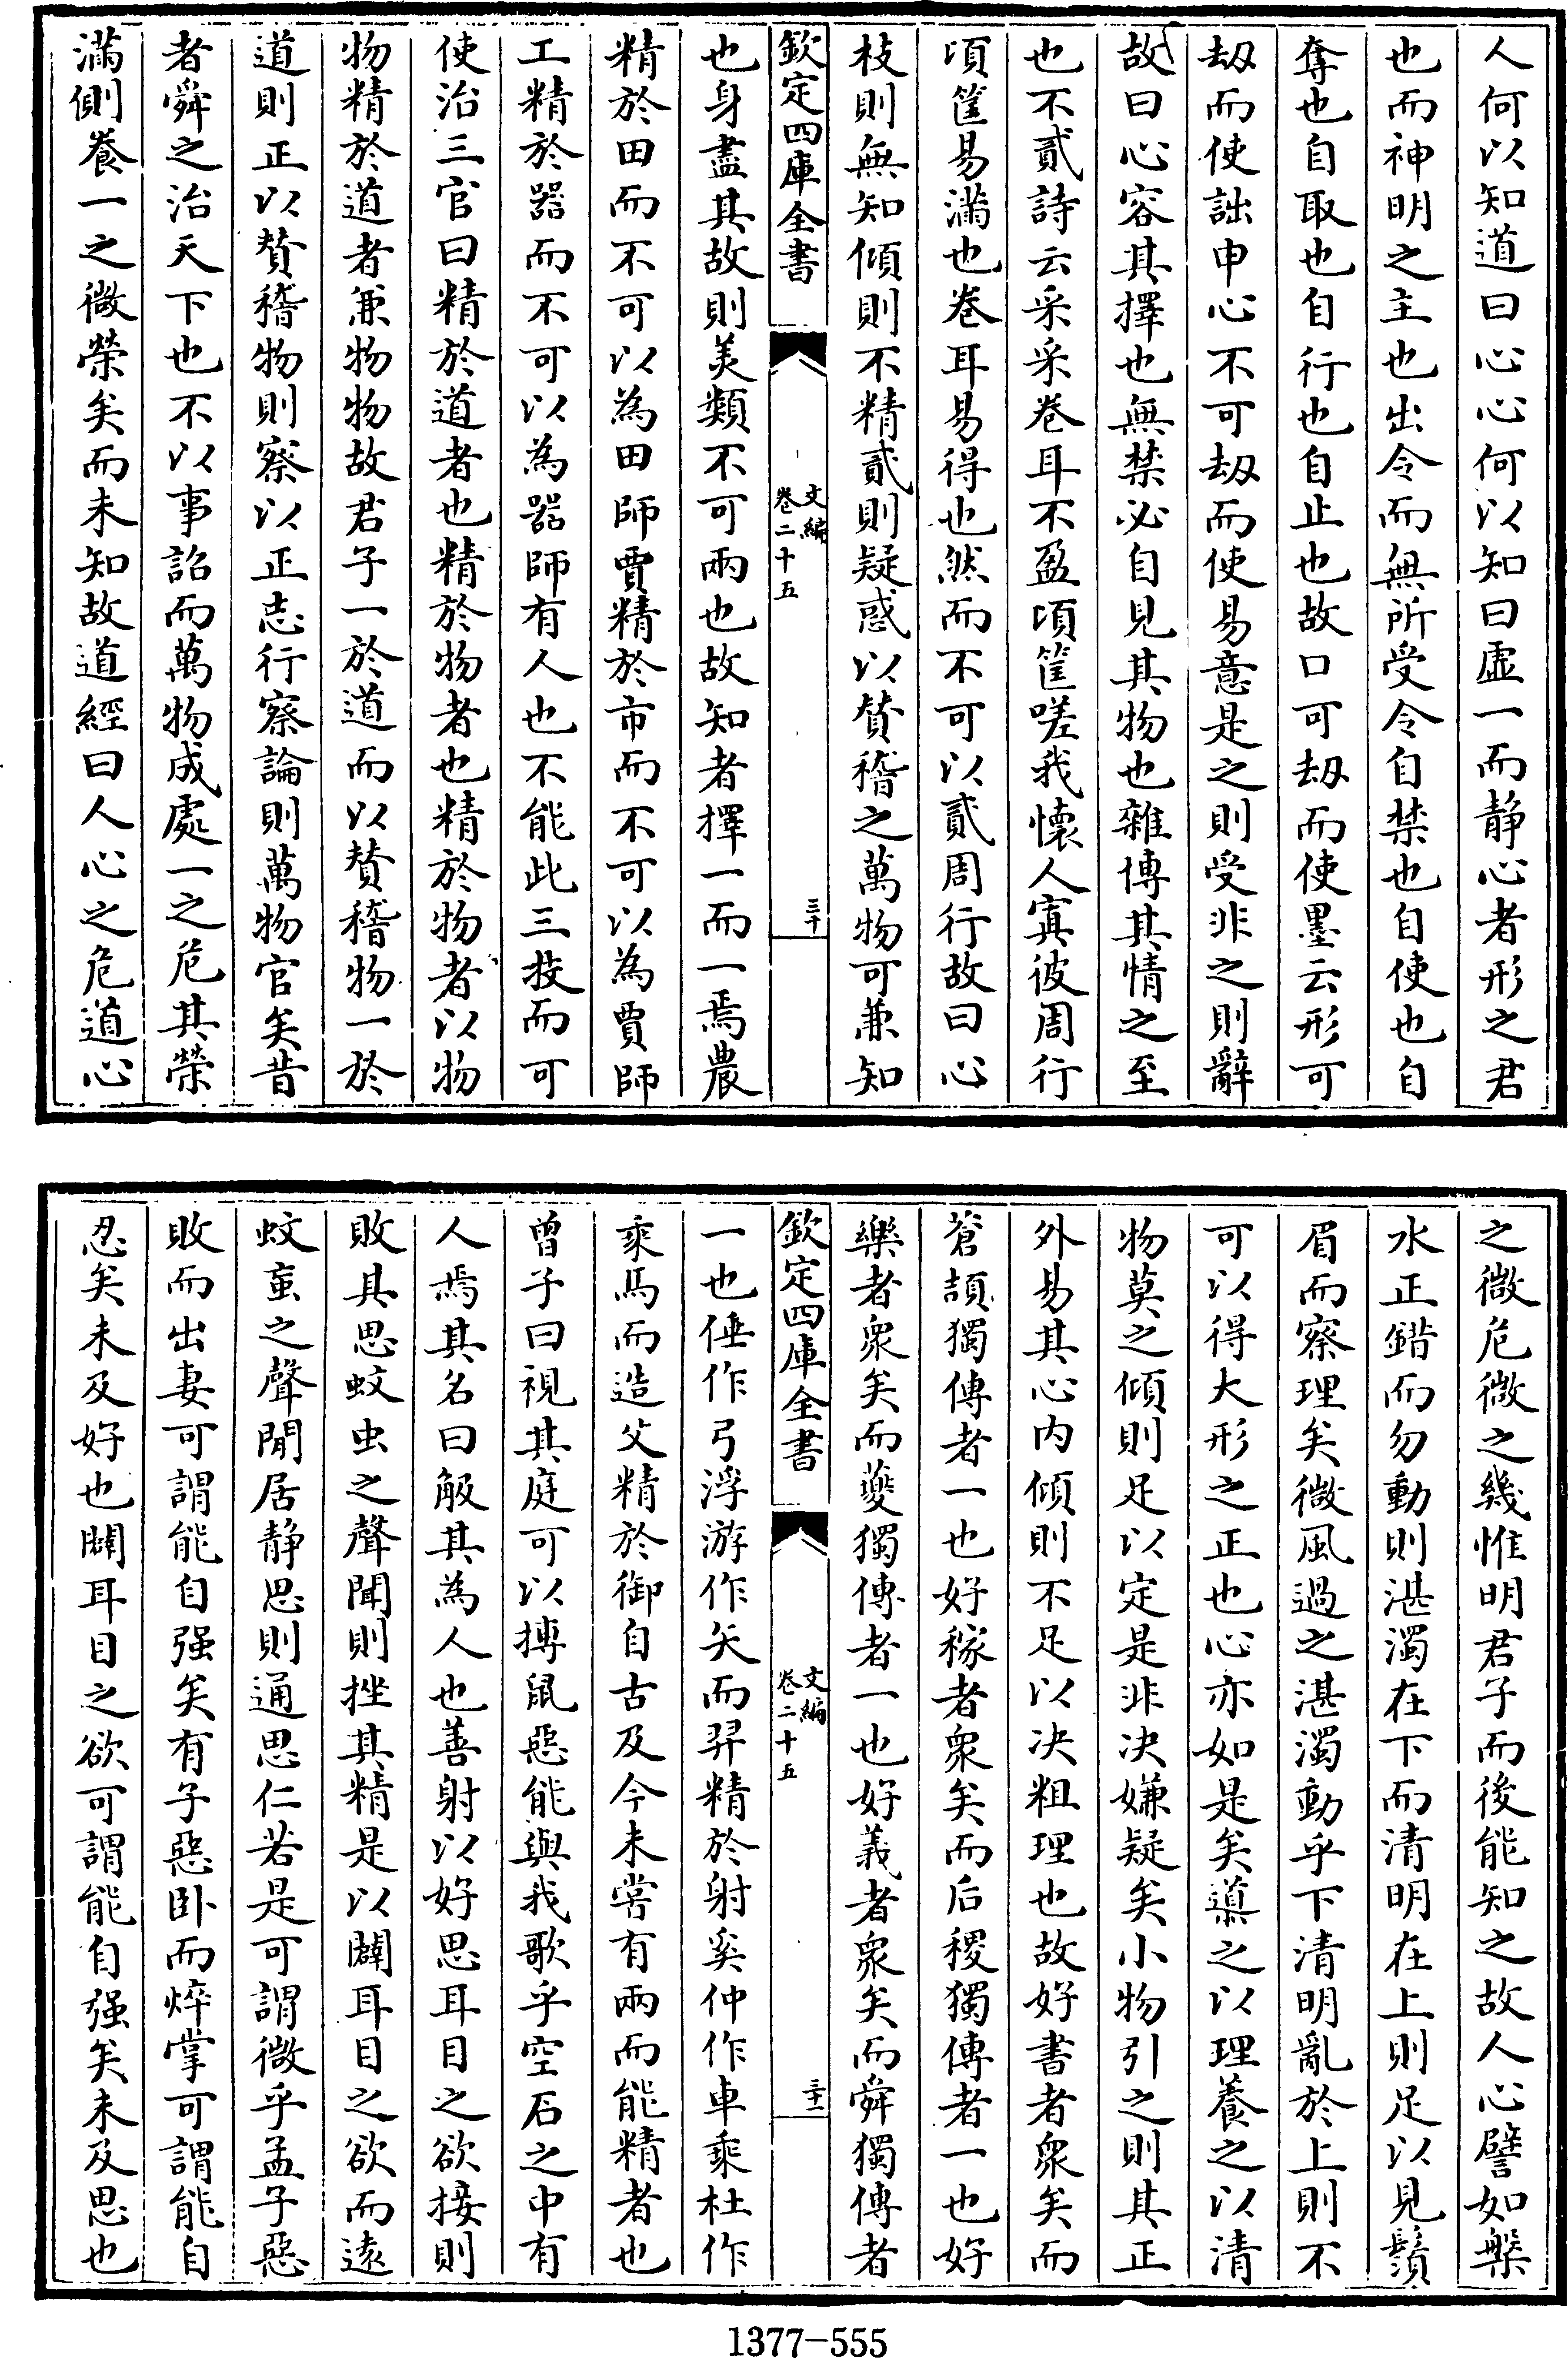 人何以知道曰心心何以知曰虚一而静心者形之君
也而神明之主也出令而無所受令自禁也自使也自
奪也自取也自行也自止也故口可刼而使墨云形可
刼而使詘申心不可刼而使易意是之則受非之則辭
故曰心容其擇也無禁必自見其物也雜博其情之至
也不貳詩云采采卷耳不盈頃筐嗟我懷人寘彼周行
頃筐易滿也卷耳易得也然而不可以貳周行故曰心
枝則無知傾則不精貳則疑惑以賛稽之萬物可兼知
欽定四庫全書
文編
卷二十五
三十
也身盡其故則美類不可兩也故知者擇一而一焉農
精於田而不可以為田師賈精於市而不可以為賈師
工精於器而不可以為器師有人也不能此三技而可
使治三官曰精於道者也精於物者也精於物者以物
物精於道者兼物物故君子一於道而以賛稽物一於
道則正以賛稽物則察以正志行察論則萬物官矣昔
者舜之治天下也不以事詔而萬物成處一之危其榮
滿側養一之微榮矣而未知故道經曰人心之危道心
之微危微之幾惟明君子而後能知之故人心譬如槃
水正錯而勿動則湛濁在下而清明在上則足以見鬚
眉而察理矣微風過之湛濁動乎下清明亂於上則不
可以得大形之正也心亦如是矣導之以理養之以清
物莫之傾則足以定是非决嫌疑矣小物引之則其正
外易其心内傾則不足以决粗理也故好書者衆矣而
蒼頡獨傳者一也好稼者衆矣而后稷獨傳者一也好
樂者衆矣而夔獨傳者一也好義者衆矣而舜獨傳者
欽定四庫全書
文編
卷二十五
三十一
一也倕作弓浮游作矢而羿精於射奚仲作車乘杜作
乘馬而造父精於御自古及今未嘗有兩而能精者也
曾子曰視其庭可以搏鼠惡能與我歌乎空石之中有
人焉其名曰觙其為人也善射以好思耳目之欲接則
敗其思蚊虫之聲聞則挫其精是以闢耳目之欲而遠
蚊䖟之聲閒居静思則通思仁若是可謂微乎孟子惡
敗而出妻可謂能自强矣有子惡卧而焠掌可謂能自
忍矣未及好也闢耳目之欲可謂能自强矣未及思也
1377-555